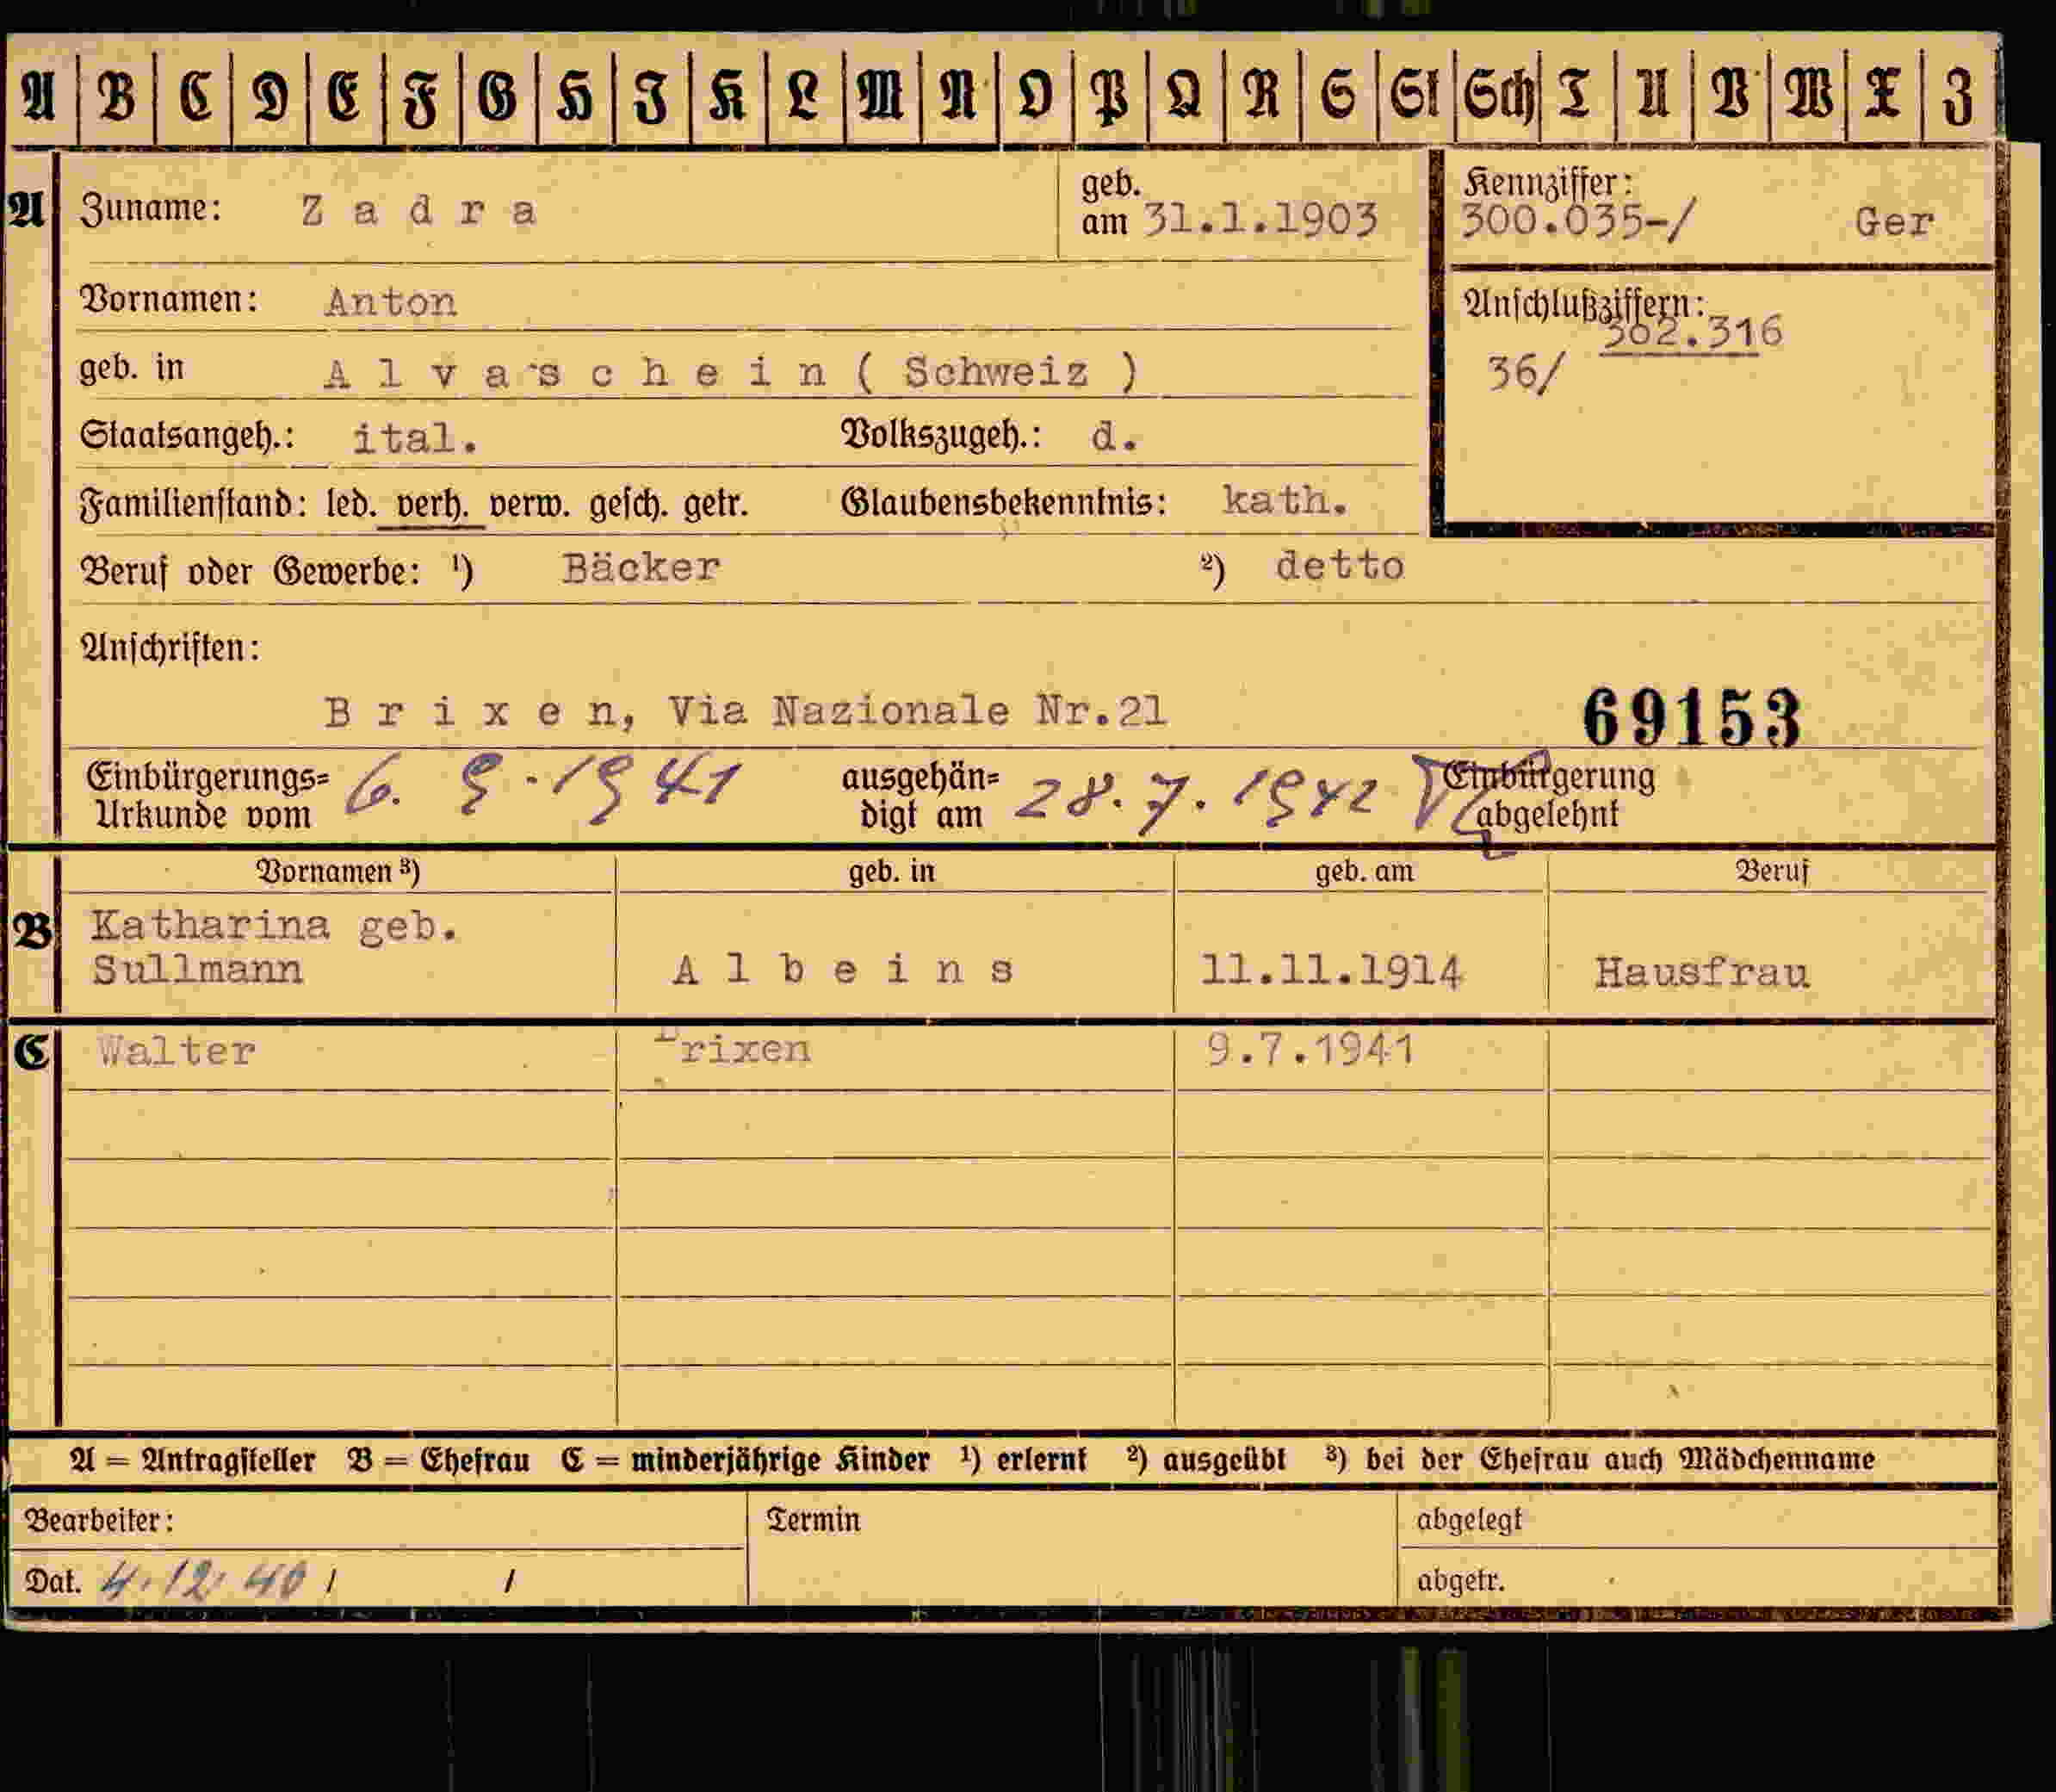 A B C D E F G H I K L M N O P Q R S St Sch T U V W X Z
A Zuname: Zadra geb. am 31.1.1903
Kennziffer: 300.035-/ Ger
Vornamen: Anton
Anschlußziffern: 302.316
36/
geb. in Alvaschein (Schweiz)
Staatsangeh.: ital. Volkszugeh.: d.
Familienstand: led. verh. verw. gesch. getr. Glaubensbekenntnis: kath.
Beruf oder Gewerbe: ¹) Bäcker ²) detto
Anschriften:
Brixen, Via Nazionale Nr.21 69153
Einbürgerungs=
Urkunde vom 6. 9.1941
ausgehän=
digt am 28.7.1942
Einbürgerung
abgelehnt
Vornamen ³) geb. in geb. am Beruf
B Katharina geb.
Sullmann Albeins 11.11.1914 Hausfrau
C Walter Brixen 9.7.1941
A = Antragsteller B = Ehefrau C = minderjährige Kinder ¹) erlernt ²) ausgeübt ³) bei der Ehefrau auch Mädchenname
Bearbeiter: Termin abgelegt
Dat. 4.12.40 / / abgetr.